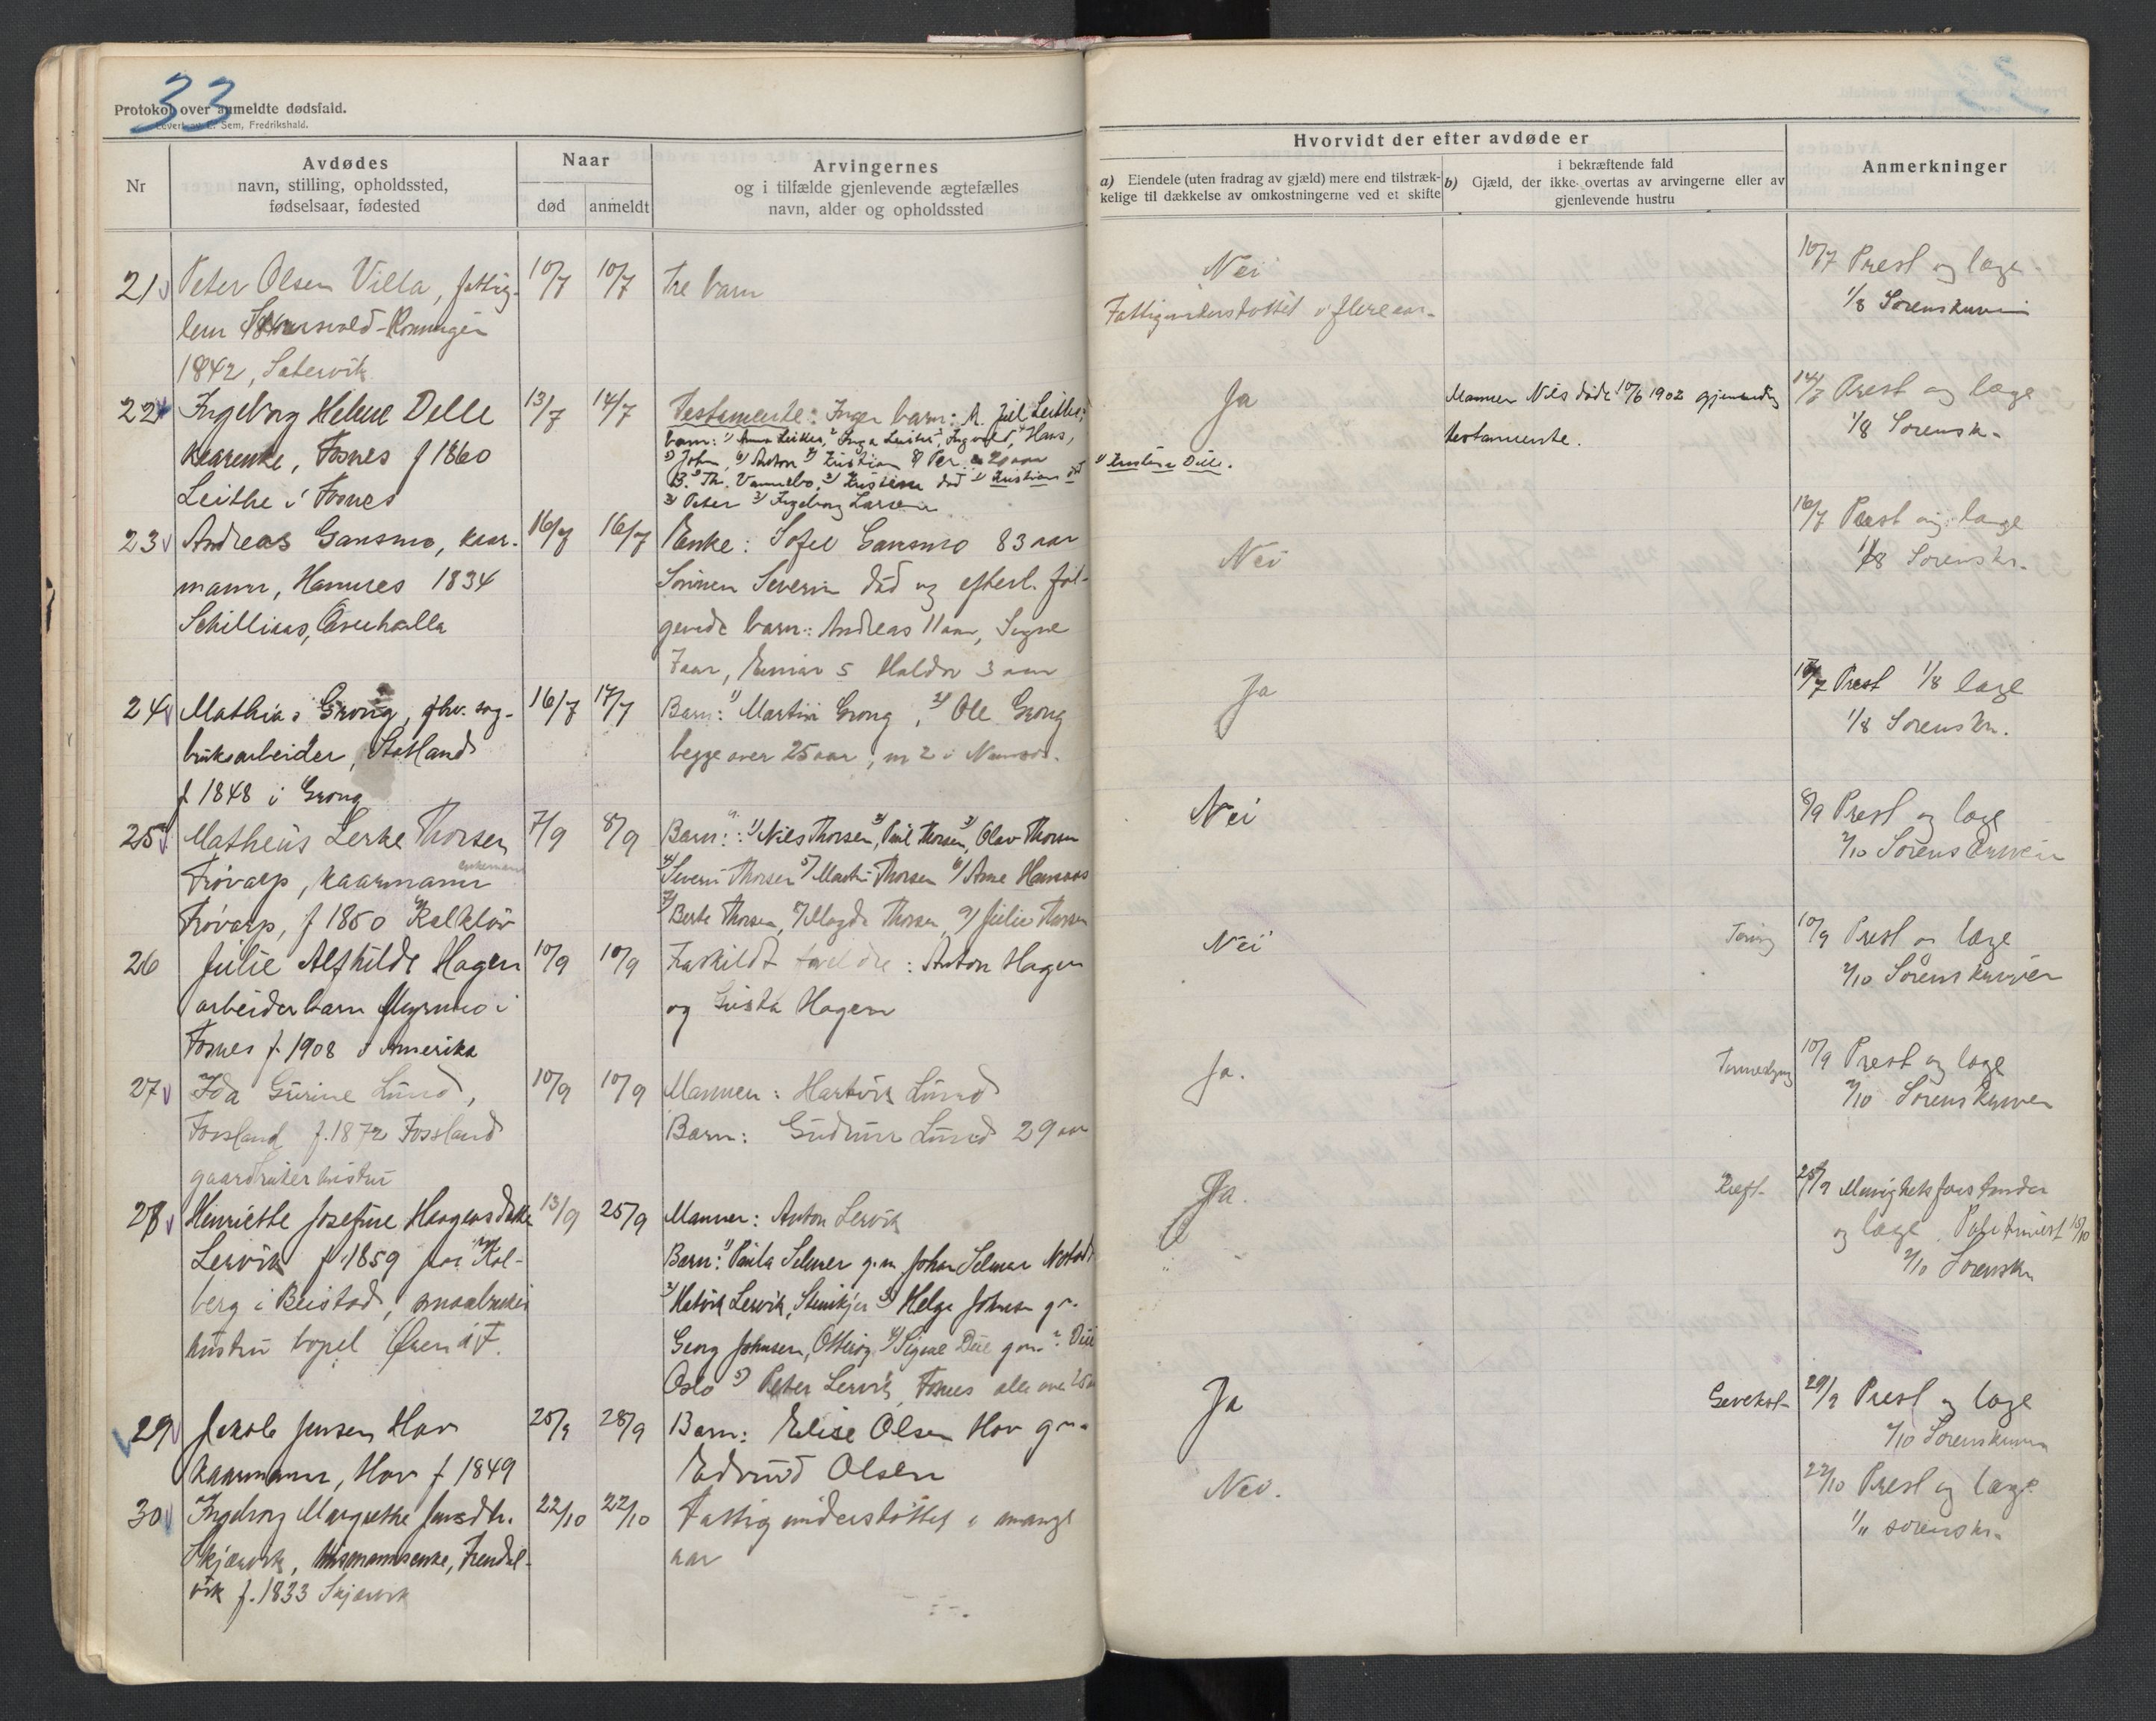 33
Protokol over anmeldte dødsfald.
Levert av E. Sem, Fredrikshald.
Nr
Avdødes
navn, stilling, opholdssted,
fødselsaar, fødested
Naar
død
anmeldt
Arvingernes
og i tilfælde gjenlevende ægtefælles
navn, alder og opholdssted
Hvorvidt der efter avdøde er
a) Eiendele (uten fradrag av gjæld) mere end tilstræk-
kelige til dækkelse av omkostningerne ved et skifte
i bekræftende fald
b) Gjæld, der ikke overtas av arvingerne eller av
gjenlevende hustru
Anmerkninger
21 Peter Olsen Villa, fattig-
lem
1842, Satervik
10/7 10/7 Tre barn
Nei
Fattigunderstøttet i flere aar.
10/7 Prest og læge
1/8 Sorenskriveren
22 Ingeborg Helene Delle
kaarenke, Fosnes f 1860
Leithe i Fosnes
13/7 14/7 Testamente: Ingen barn: A.
barn: 1) Anna Leithe, 2) Inga Leithe, Ingvald, Hans,
5) John, 6) Anton 7) Kristian 8) Per 20 aar
B. Th. Vannebo, Kristine død 1) Kristian
2) Peter 3) Ingeborg Larsen
1) Kristine Dille.
Ja
Mannen Nils døde 10/6 1902 gjensidig
testamente.
14/7 Prest og læge
1/8 Sorensk.
23 Andreas Gansmo, kaar-
mann, Hamnes 1834
Schillieaas, Overhalla
16/7 16/7 Enke: Sofie Gansmo 83 aar
Sønnen Severin død og efterl. føl-
gende barn: Andreas 11 aar, Signe
7 aar, Einar 5 Haldor 3 aar
Nei
16/7 Prest og læge
1/8 Sorenskr.
24 Mathias Grong, fhv. sag-
bruksarbeider, Statland
f 1848 i Grong
16/7 17/7 Barn: 1) Martin Grong, 2) Ole Grong
begge over 25 aar, nr 2 i Namsos.
Ja
17/7 Prest 1/8 læge
1/8 Sorenskr.
25 Matheus Lerke Thorsen
Frøvarp, kaarmann enkemann
Frøvarp, f 1850 Kalkløv
7/9 8/9 Barn: 1) Nils Thorsen, 2) Paul Thorsen, 3) Olav Thorsen
4) Severin Thorsen 5) Martin Thorsen 6) Anne Hansaas
7) Berte Thorsen, 8) Magda Thorsen, 9) Julie Thorsen
Nei
8/9 Prest og læge
2/10 Sorenskriver
26 Julie Alfhilde Hagen
arbeiderbarn Myrmo i
Fosnes f. 1908 i Amerika
10/9 10/9 Fraskildt foreldre: Anton Hagen
og Gusta Hagen
Nei
Tæring
10/9 Prest og læge
2/10 Sorenskriver
27 Ida Gurine Lund,
Fossland f. 1872 Fossland
gaardbrukerhustru
10/9 10/9 Mannen: Hartvik Lund
Barn: Gudrun Lund 29 aar
Ja.
10/9 Prest og læge
2/10 Sorenskriver
28 Henriette Josefine Haagensdatter
Lervik f. 1859 paa Kol-
berg i Beistad, smaabruker
hustru bopel Øren i F.
13/9 25/9 Mannen: Anton Lervik
Barn: 1) Paula Selmer g.m. Johan Selmer
2) Hartvik Lervik, Steinkjer 3) Helga Johnsen g.m.
Georg Johnsen, Otterøy 4) Signe Due g.m. ? Due
Oslo 5) Peter Lervik, Fosnes alle over 25 aar
Ja.
Kreft
25/9 Menighetsforstander
og læge. Politimest 15/10
2/10 Sorenskr
29 Jakob Jensen Hov
kaarmann, Hov f 1849
25/9 28/9 Barn: Elise Olsen Hov g.m.
Edvind Olsen
Ja
29/9 Prest og læge
2/10 Sorenskriveren
30 Ingeborg Margrethe Jensdtr.
Skjærvik, husmannsenke, Frendal-
vik f. 1833 Skjærvik
22/10 22/10 Fattigunderstøttet i mange
aar
Nei.
22/10 Prest og læge
1/11 sorenskr.